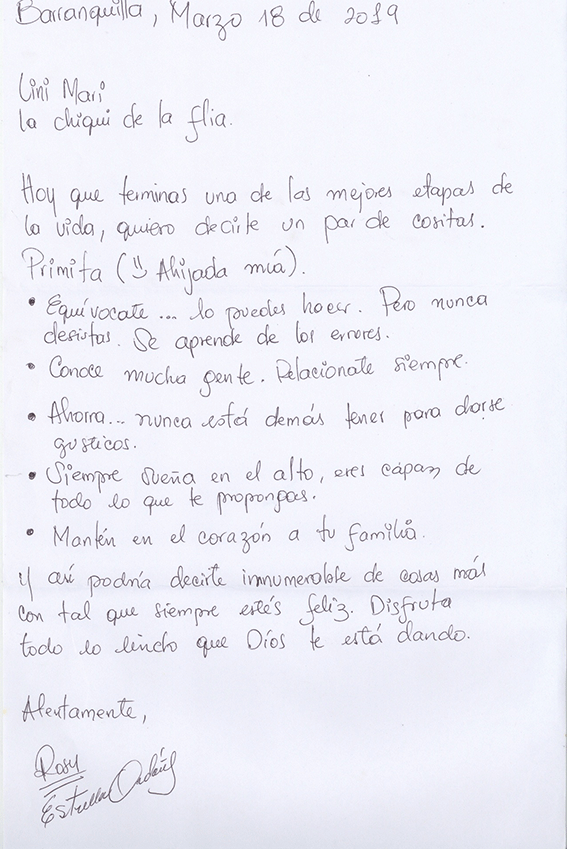 Barranquilla, Marzo 18 de 2019
Lini Mari
la chiqui de la flia.
Hoy que terminas una de las mejores etapas de
la vida, quiero decirte un par de cositas.
Primita (Ahijada miá).
• Equívocate... lo puedes hacer. Pero nunca
desistas. Se aprende de los errores.
• Conoce mucha gente. Relacionate siempre.
• Ahorra... nunca está demás tener para darse
gusticos.
• Siempre sueña en el alto, eres cápaz de
todo lo que te propongas.
• Mantén en el corazón a tu familia.
Y así podría decirte innumerable de cosas más
con tal que siempre estés feliz. Disfruta
todo lo lindo que Díos te está dando.
Atentamente,
Rosy
Estrella